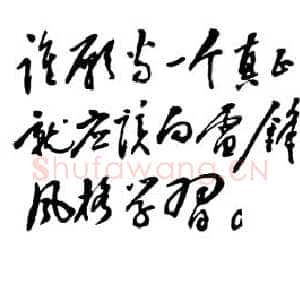 谁愿当一个真正
就应该向雷锋
Shufawang.CN
风格学习。